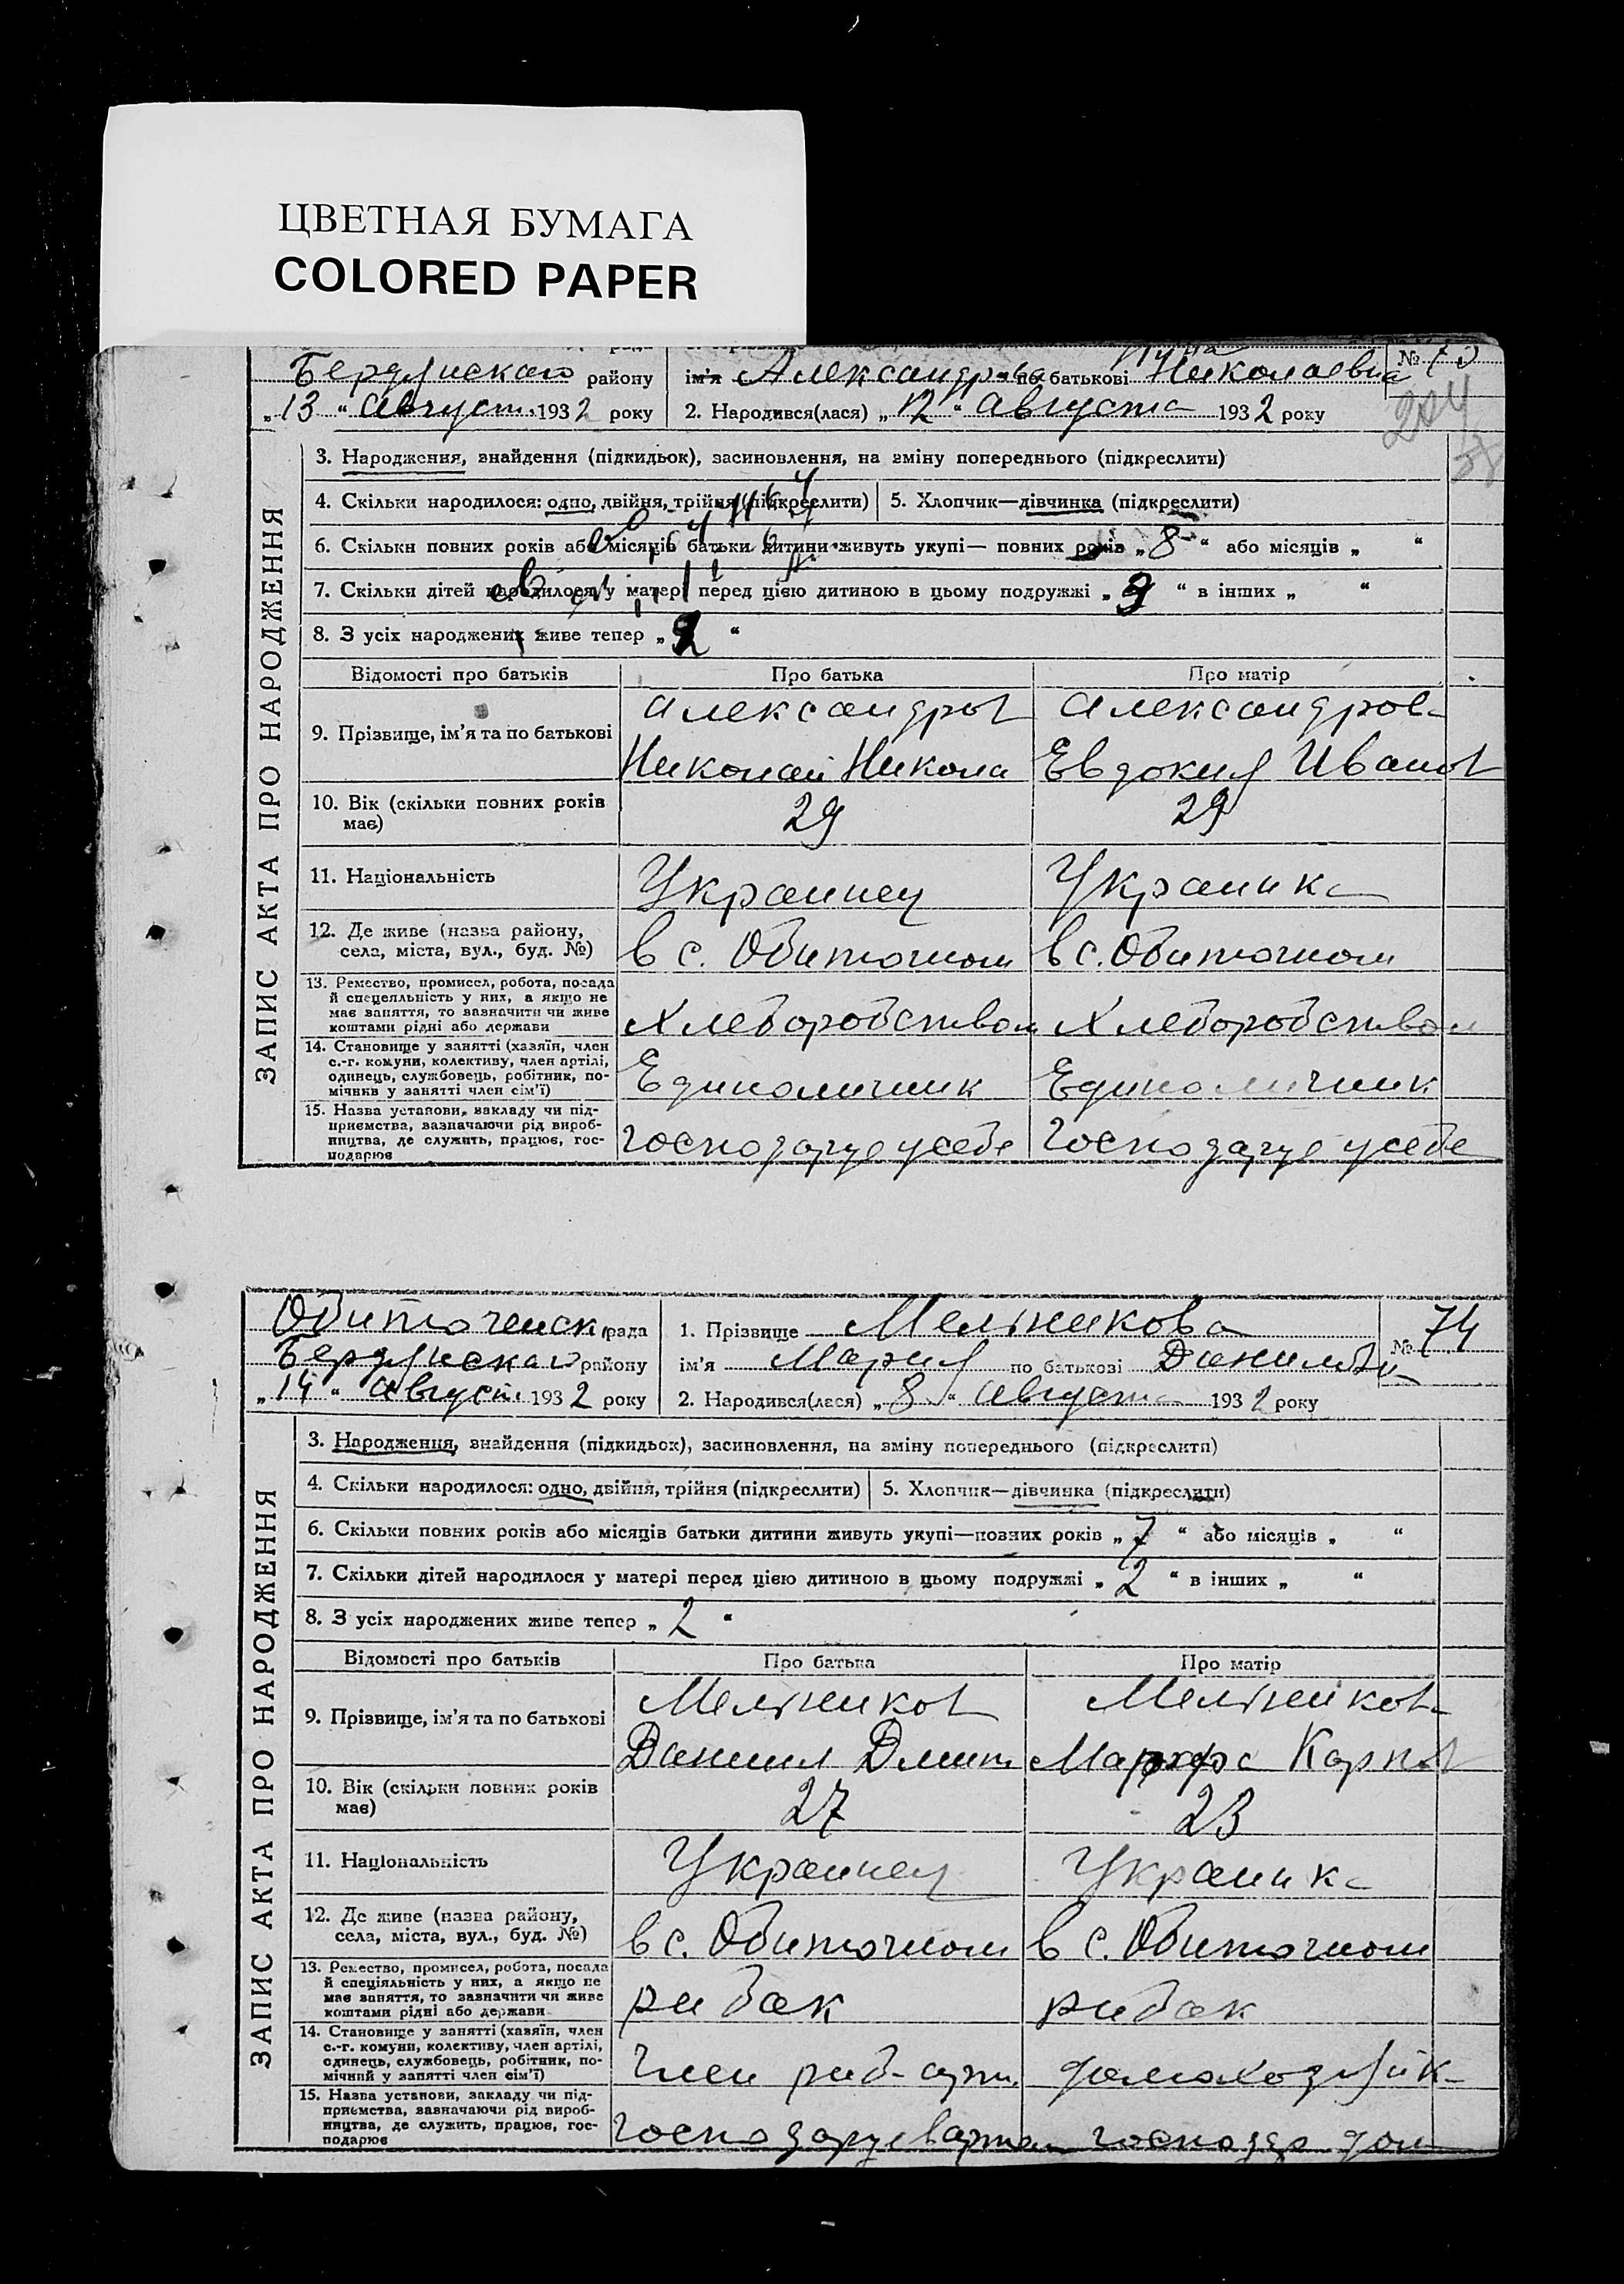 ЦВЕТНАЯ БУМАГА
COLORED PAPER
Бердянскаго району
ім'я Александрова по батькові Николаевна
№
„13“ Август. 1932 року
2. Народився(лася) „12“ Августа 1932 року
ЗАПИС АКТА ПРО НАРОДЖЕННЯ
3. Народження, знайдення (підкидьок), засиновлення, на зміну попереднього (підкреслити)
4. Скільки народилося: одно, двійня, трійня (підкреслити) 5. Хлопчик—дівчинка (підкреслити)
6. Скільки повних років або місяців батьки дитини живуть укупі— повних років „8“ або місяців „ “
7. Скільки дітей народилося у матері перед цією дитиною в цьому подружжі „ “ в інших „ “
8. З усіх народжених живе тепер „ “
Відомості про батьків Про батька Про матір
9. Прізвище, ім'я та по батькові
Александров Александров
Николай Никола Евдокия Иванов
10. Вік (скільки повних років має) 29 29
11. Національність Украинец Украинка
12. Де живе (назва району, села, міста, вул., буд. №) в с. Обиточном в с. Обиточном
13. Ремество, промисел, робота, посада
й спеціяльність у них, а якщо не
має заняття, то зазначити чи живе
коштами рідні або держави
Хлеборобством Хлеборобством
14. Становище у занятті (хазяїн, член
с.-г. комуни, колективу, член артілі,
одинець, службовець, робітник, по-
мічник у занятті член сім'ї)
Единоличник Единоличник
15. Назва установи, закладу чи під-
приємства, зазначаючи рід вироб-
ництва, де служить, працює, гос-
подарює
господарує у себе господарує у себе
Обиточенск. рада
1. Прізвище Мельникова
№ 74
Бердянскаго району
ім'я Мария по батькові Даниловн
„14“ Август. 1932 року
2. Народився(лася) „8“ Августа 1932 року
ЗАПИС АКТА ПРО НАРОДЖЕННЯ
3. Народження, знайдення (підкидьок), засиновлення, на зміну попереднього (підкреслити)
4. Скільки народилося: одно, двійня, трійня (підкреслити) 5. Хлопчик—дівчинка (підкреслити)
6. Скільки повних років або місяців батьки дитини живуть укупі—повних років „7“ або місяців „ “
7. Скільки дітей народилося у матері перед цією дитиною в цьому подружжі „2“ в інших „ “
8. З усіх народжених живе тепер „2“
Відомості про батьків Про батька Про матір
9. Прізвище, ім'я та по батькові
Мельников Мельников
Даниил Дмит Марфа Карпов
10. Вік (скільки повних років має) 27 23
11. Національність Украинец Украинка
12. Де живе (назва району, села, міста, вул., буд. №) в с. Обиточном в с. Обиточном
13. Ремество, промисел, робота, посада
й спеціяльність у них, а якщо не
має заняття, то зазначити чи живе
коштами рідні або держави
рибак рибак
14. Становище у занятті (хазяїн, член
с.-г. комуни, колективу, член артілі,
одинець, службовець, робітник, по-
мічний у занятті член сім'ї)
член риб. арт. домохозяйк
15. Назва установи, закладу чи під-
приємства, зазначаючи рід вироб-
ництва, де служить, працює, гос-
подарює
господарує в артел господар дом